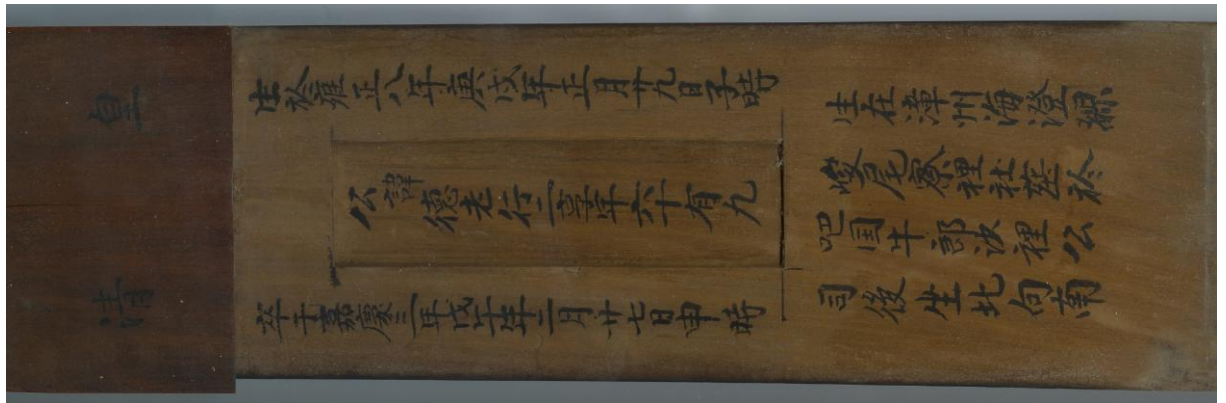 皇清
生於雍正八年庚戌年正月廿九日子時
公諱德老行二享年六十有九
卒于嘉慶三年戊午年二月廿七日申時
生在漳州海澄縣
崚尾寮裡社塟於
吧国牛郎沙裡公
司後坐北向南